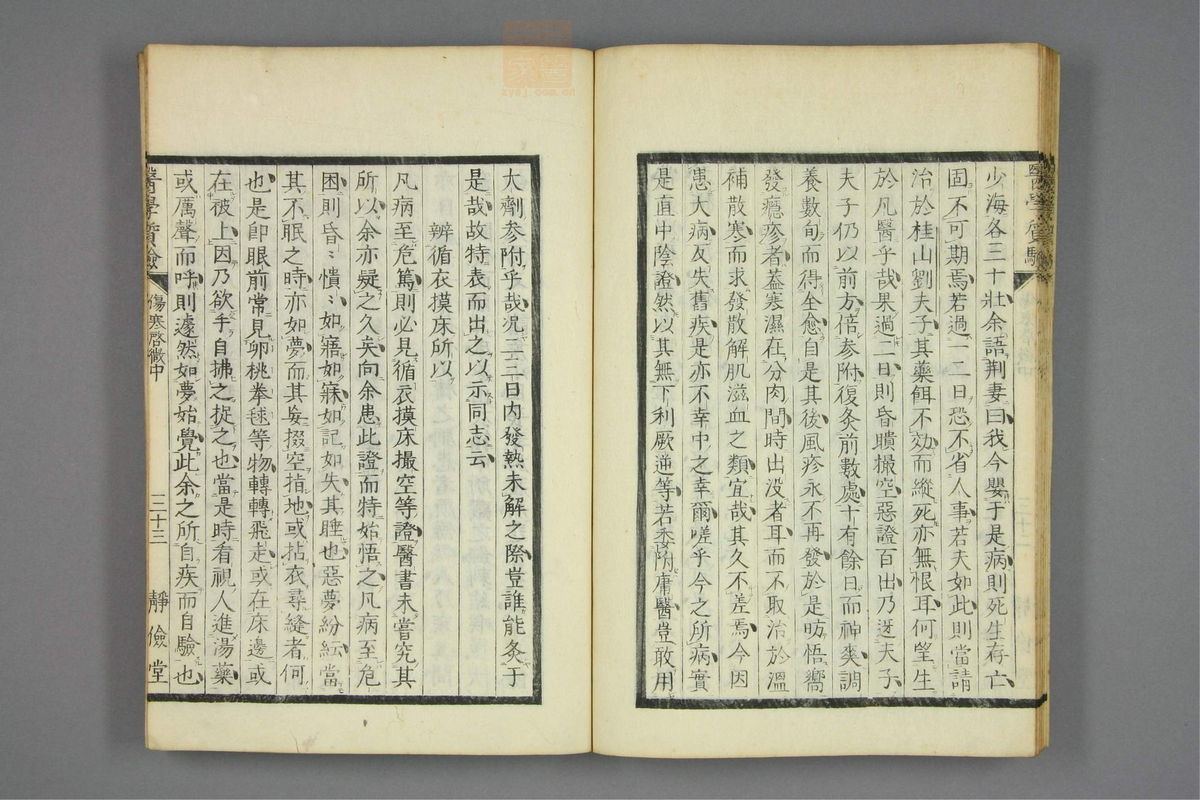 少海各三十壯余語荆妻曰我今嬰于是病則死生存亡
固不可期焉若過一二日恐不省人事若夫如此則當請
治於桂山劉夫子其藥餌不効而縱死亦無恨耳何望生
於凡醫乎哉果過二日則昏瞶撮空惡證百出乃迓夫子
夫子仍以前方倍参附復灸前數處十有餘日而神爽調
養數旬而得全愈自是其後風疹永不再發於是昉悟嚮
發癮疹者蓋寒濕在分肉間時出没者耳而不取治於溫
補散寒而求發散解肌滋血之類宜哉其久不差焉今因
患大病反失舊疾是亦不幸中之幸爾嗟乎今之所病實
是直中陰證然以其無下利厥逆等若委附庸醫豈敢用
大劑参附乎哉況二三日内發熱未解之際豈誰能灸于
是哉故特表而出之以示同志云
辨循衣摸床所以
凡病至危篤則必見循衣摸床撮空等證醫書未嘗究其
所以余亦疑之久矣向余患此證而特始悟之凡病至危
困則昏〻憒〻如寤如寐如記如失其睡也惡夢紛紜當
其不眠之時亦如夢而其妄掇空指地或拈衣尋縫者何
也是卽眼前常見卵桃拳毬等物轉轉飛走或在床邊或
在被上因乃欲手自拂之捉之也當是時看視人進湯藥
或厲聲而呼則遽然如夢始覺此余之所自疾而自驗也
醫學質驗
傷寒啓微中
二十三
靜儉堂